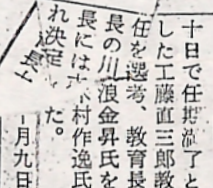 十日で任期満了と
した工藤直三郎教
任を選考、教育長
長の川浪金昇氏を
長には木村作逸氏
れ決定した。
月九日